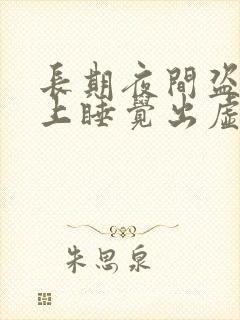 長期夜間盗
上睡覺出虛
朱思泉